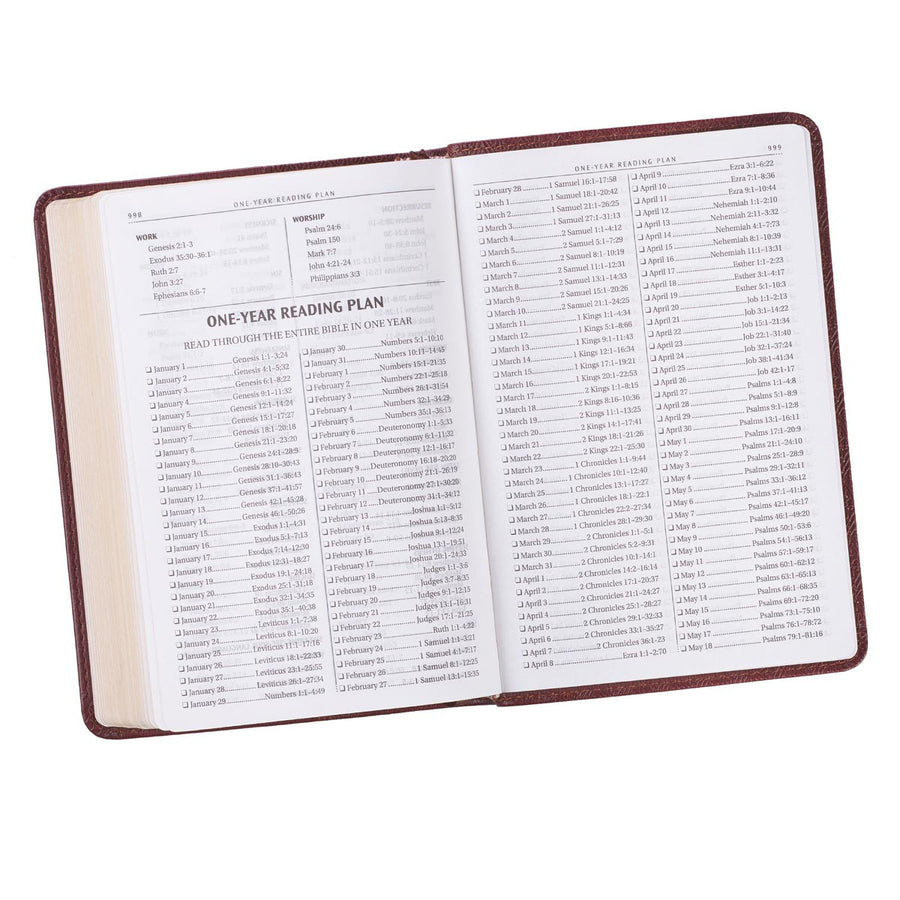 998
ONE-YEAR READING PLAN
WORK
Genesis 2:1-3
Exodus 35:30-36:1
Ruth 2:7
John 3:27
Ephesians 6:6-7
WORSHIP
Psalm 24:6
Psalm 150
Mark 7:7
John 4:21-24
Philippians 3:3
ONE-YEAR READING PLAN
READ THROUGH THE ENTIRE BIBLE IN ONE YEAR
❑ January 1 Genesis 1:1–3:24
❑ January 2 Genesis 4:1–5:32
❑ January 3 Genesis 6:1–8:22
❑ January 4 Genesis 9:1–11:32
❑ January 5 Genesis 12:1–14:24
❑ January 6 Genesis 15:1–17:27
❑ January 7 Genesis 18:1–20:18
❑ January 8 Genesis 21:1–23:20
❑ January 9 Genesis 24:1–28:9
❑ January 10 Genesis 28:10–30:43
❑ January 11 Genesis 31:1–36:43
❑ January 12 Genesis 37:1–41:57
❑ January 13 Genesis 42:1–45:28
❑ January 14 Genesis 46:1–50:26
❑ January 15 Exodus 1:1–4:31
❑ January 16 Exodus 5:1–7:13
❑ January 17 Exodus 7:14–12:30
❑ January 18 Exodus 12:31–18:27
❑ January 19 Exodus 19:1–24:18
❑ January 20 Exodus 25:1–31:18
❑ January 21 Exodus 32:1–34:35
❑ January 22 Exodus 35:1–40:38
❑ January 23 Leviticus 1:1–7:38
❑ January 24 Leviticus 8:1–10:20
❑ January 25 Leviticus 11:1–17:16
❑ January 26 Leviticus 18:1–22:33
❑ January 27 Leviticus 23:1–25:55
❑ January 28 Leviticus 26:1–27:34
❑ January 29 Numbers 1:1–4:49
❑ January 30 Numbers 5:1–10:10
❑ January 31 Numbers 10:11–14:45
❑ February 1 Numbers 15:1–21:35
❑ February 2 Numbers 22:1–25:18
❑ February 3 Numbers 26:1–31:54
❑ February 4 Numbers 32:1–34:29
❑ February 5 Numbers 35:1–36:13
❑ February 6 Deuteronomy 1:1–5:33
❑ February 7 Deuteronomy 6:1–11:32
❑ February 8 Deuteronomy 12:1–16:17
❑ February 9 Deuteronomy 16:18–20:20
❑ February 10 Deuteronomy 21:1–26:19
❑ February 11 Deuteronomy 27:1–30:20
❑ February 12 Deuteronomy 31:1–34:12
❑ February 13 Joshua 1:1–5:12
❑ February 14 Joshua 5:13–8:35
❑ February 15 Joshua 9:1–12:24
❑ February 16 Joshua 13:1–19:51
❑ February 17 Joshua 20:1–24:33
❑ February 18 Judges 1:1–3:6
❑ February 19 Judges 3:7–8:35
❑ February 20 Judges 9:1–12:15
❑ February 21 Judges 13:1–16:31
❑ February 22 Judges 17:1–21:25
❑ February 23 Ruth 1:1–4:22
❑ February 24 1 Samuel 1:1–3:21
❑ February 25 1 Samuel 4:1–7:17
❑ February 26 1 Samuel 8:1–12:25
❑ February 27 1 Samuel 13:1–15:35
ONE-YEAR READING PLAN
999
❑ February 28 1 Samuel 16:1–17:58
❑ March 1 1 Samuel 18:1–20:42
❑ March 2 1 Samuel 21:1–26:25
❑ March 3 1 Samuel 27:1–31:13
❑ March 4 2 Samuel 1:1–4:12
❑ March 5 2 Samuel 5:1–7:29
❑ March 6 2 Samuel 8:1–10:19
❑ March 7 2 Samuel 11:1–12:31
❑ March 8 2 Samuel 13:1–14:33
❑ March 9 2 Samuel 15:1–20:26
❑ March 10 2 Samuel 21:1–24:25
❑ March 11 1 Kings 1:1–4:34
❑ March 12 1 Kings 5:1–8:66
❑ March 13 1 Kings 9:1–11:43
❑ March 14 1 Kings 12:1–16:34
❑ March 15 1 Kings 17:1–19:21
❑ March 16 1 Kings 20:1–22:53
❑ March 17 2 Kings 1:1–8:15
❑ March 18 2 Kings 8:16–10:36
❑ March 19 2 Kings 11:1–13:25
❑ March 20 2 Kings 14:1–17:41
❑ March 21 2 Kings 18:1–21:26
❑ March 22 2 Kings 22:1–25:30
❑ March 23 1 Chronicles 1:1–9:44
❑ March 24 1 Chronicles 10:1–12:40
❑ March 25 1 Chronicles 13:1–17:27
❑ March 26 1 Chronicles 18:1–22:1
❑ March 27 1 Chronicles 22:2–27:34
❑ March 28 1 Chronicles 28:1–29:30
❑ March 29 2 Chronicles 1:1–5:1
❑ March 30 2 Chronicles 5:2–9:31
❑ March 31 2 Chronicles 10:1–14:1
❑ April 1 2 Chronicles 14:2–16:14
❑ April 2 2 Chronicles 17:1–20:37
❑ April 3 2 Chronicles 21:1–24:27
❑ April 4 2 Chronicles 25:1–28:27
❑ April 5 2 Chronicles 29:1–32:33
❑ April 6 2 Chronicles 33:1–35:27
❑ April 7 2 Chronicles 36:1–23
❑ April 8 Ezra 1:1–2:70
❑ April 9 Ezra 3:1–6:22
❑ April 10 Ezra 7:1–8:36
❑ April 11 Ezra 9:1–10:44
❑ April 12 Nehemiah 1:1–2:10
❑ April 13 Nehemiah 2:11–3:32
❑ April 14 Nehemiah 4:1–7:73
❑ April 15 Nehemiah 8:1–10:39
❑ April 16 Nehemiah 11:1–13:31
❑ April 17 Esther 1:1–2:23
❑ April 18 Esther 3:1–4:17
❑ April 19 Esther 5:1–10:3
❑ April 20 Job 1:1–2:13
❑ April 21 Job 3:1–14:22
❑ April 22 Job 15:1–21:34
❑ April 23 Job 22:1–31:40
❑ April 24 Job 32:1–37:24
❑ April 25 Job 38:1–41:34
❑ April 26 Job 42:1–17
❑ April 27 Psalms 1:1–4:8
❑ April 28 Psalms 5:1–8:9
❑ April 29 Psalms 9:1–12:8
❑ April 30 Psalms 13:1–16:11
❑ May 1 Psalms 17:1–20:9
❑ May 2 Psalms 21:1–24:10
❑ May 3 Psalms 25:1–28:9
❑ May 4 Psalms 29:1–32:11
❑ May 5 Psalms 33:1–36:12
❑ May 6 Psalms 37:1–41:13
❑ May 7 Psalms 42:1–45:17
❑ May 8 Psalms 46:1–49:20
❑ May 9 Psalms 50:1–53:6
❑ May 10 Psalms 54:1–56:13
❑ May 11 Psalms 57:1–59:17
❑ May 12 Psalms 60:1–62:12
❑ May 13 Psalms 63:1–65:13
❑ May 14 Psalms 66:1–68:35
❑ May 15 Psalms 69:1–72:20
❑ May 16 Psalms 73:1–75:10
❑ May 17 Psalms 76:1–78:72
❑ May 18 Psalms 79:1–81:16